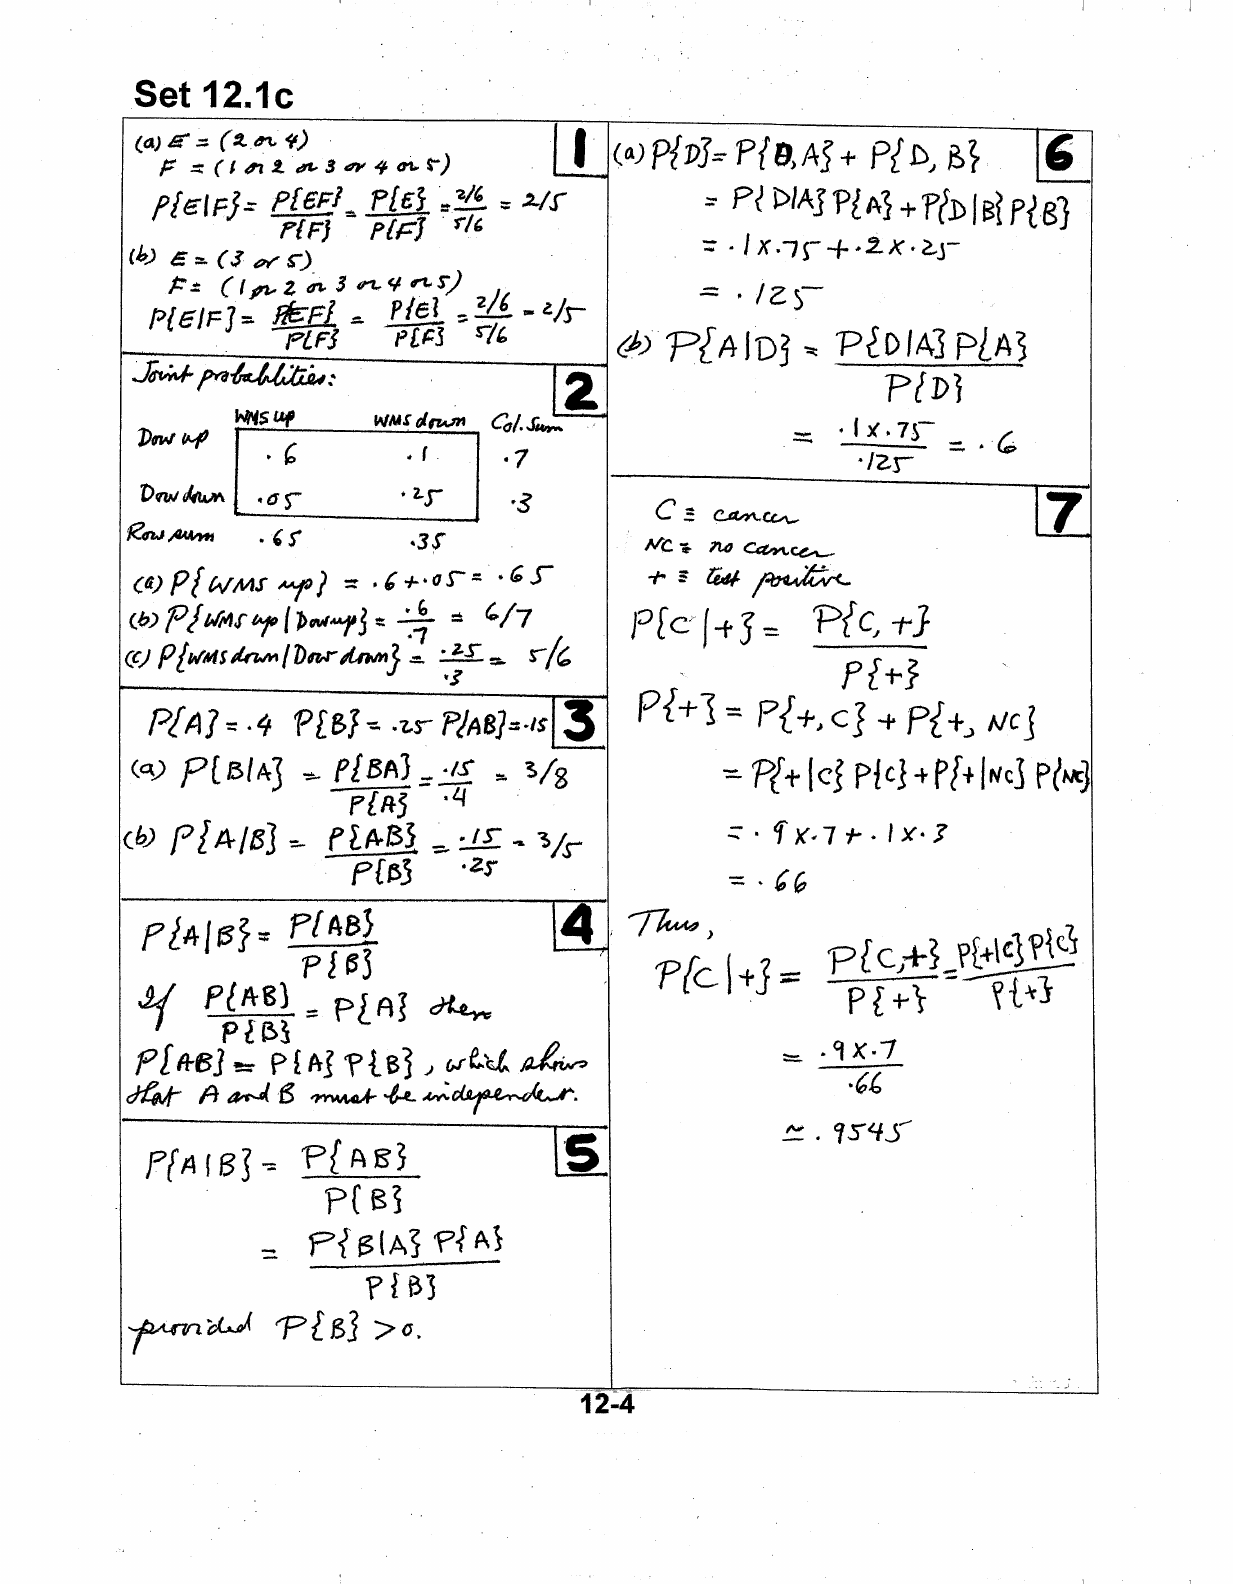 Set 12.1c
1
(a) E = (2 or 4)
F = (1 or 2 or 3 or 4 or 5)
P{E|F} = P{EF}/P{F} = P{E}/P{F} = 2/6 / 5/6 = 2/5
(b) E = (3 or 5)
F = (1 or 2 or 3 or 4 or 5)
P{E|F} = P{EF}/P{F} = P{E}/P{F} = 2/6 / 5/6 = 2/5
2
Joint probabilities:
WMS up WMS down Col. Sum
Dow up .6 .1 .7
Dow down .05 .25 .3
Row sum .65 .35
(a) P{WMS up} = .6 + .05 = .65
(b) P{WMS up | Dow up} = .6/.7 = 6/7
(c) P{WMS down | Dow down} = .25/.3 = 5/6
3
P{A} = .4 P{B} = .25 P{AB} = .15
(a) P{B|A} = P{BA}/P{A} = .15/.4 = 3/8
(b) P{A|B} = P{AB}/P{B} = .15/.25 = 3/5
4
P{A|B} = P{AB}/P{B}
If P{AB}/P{B} = P{A} then
P{AB} = P{A} P{B}, which shows
that A and B must be independent.
5
P{A|B} = P{AB}/P{B}
= P{B|A} P{A}/P{B}
provided P{B} > 0.
6
(a) P{D} = P{D, A} + P{D, B}
= P{D|A} P{A} + P{D|B} P{B}
= .1 x .75 + .2 x .25
= .125
(b) P{A|D} = P{D|A} P{A}/P{D}
= .1 x .75/.125 = .6
7
C ≡ cancer
NC ≡ no cancer
+ ≡ test positive
P{C|+} = P{C, +}/P{+}
P{+} = P{+, C} + P{+, NC}
= P{+|C} P{C} + P{+|NC} P{NC}
= .9 x .7 + .1 x .3
= .66
Thus,
P{C|+} = P{C,+}/P{+} = P{+|C} P{C}/P{+}
= .9 x .7/.66
≃ .9545
12-4